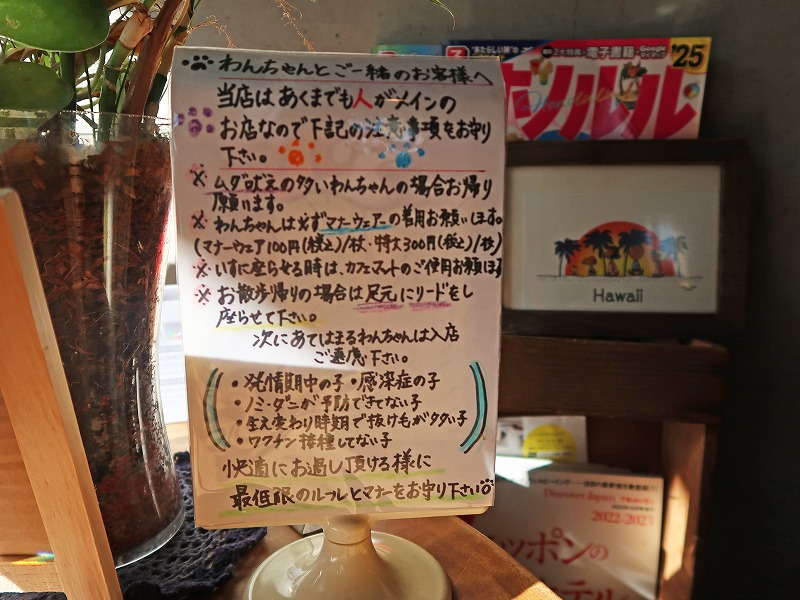 わんちゃんとご一緒のお客様へ
当店はあくまでも人がメインの
お店なので下記の注意事項をお守り
下さい。
※ムダ吠えの多いわんちゃんの場合お帰り
願います。
※わんちゃんは必ずマナーウェアーの着用お願いします。
(マナーウェア100円(税込)/枚・特大300円(税込)/枚)
※いすに座らせる時は、カフェマットのご使用お願い
※お散歩帰りの場合は足元にリードをし
座らせて下さい。
次にあてはまるわんちゃんは入店
ご遠慮下さい。
・発情期中の子・感染症の子
・ノミ・ダニが予防できてない子
・生え変わり時期で抜けもがタタい子
・ワクチン接種してない子
快適にお過し頂ける様に
最低限のルールとマナーをお守り下さい
"あたらしい旅"の
2大特典 電子書籍 Google マイマップ
'25
ホノルル
Hawaii
Discover Japan TRAVEL
2022-2023
ッポンの
テル